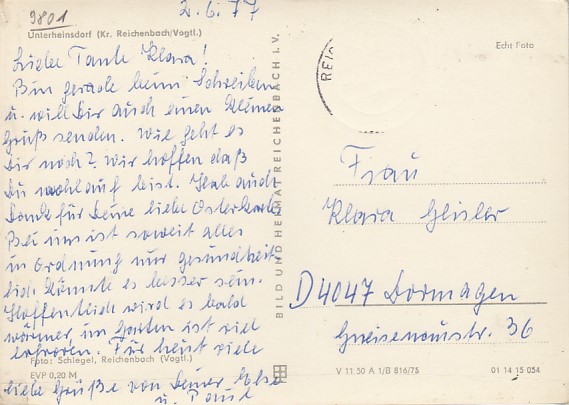 9801
2.6.77
Unterheinsdorf (Kr. Reichenbach/Vogtl.)
Liebe Tante Klara!
Bin gerade beim Schreiben
u. will Dir auch einen kleinen
Gruß senden. Wie geht es
Dir noch? Wir hoffen daß
Du wohlauf bist. Hab auch
Dank für Deine liebe Osterkarte
Bei uns ist soweit alles
in Ordnung nur gesundheit-
lich könnte es besser sein.
Hoffentlich wird es bald
wärmer im Garten ist viel
erfroren. Für heut viele
liebe Grüße von Deiner Else
u. Paul
Foto: Schlegel, Reichenbach (Vogtl.)
EVP 0,20 M
BILD UND HEIMAT REICHENBACH I. V.
Echt Foto
REIC
Frau
Klara Geisler
D 4047 Dormagen
Gneisenaustr. 36
V 11 50 A 1/B 816/75
01 14 15 054